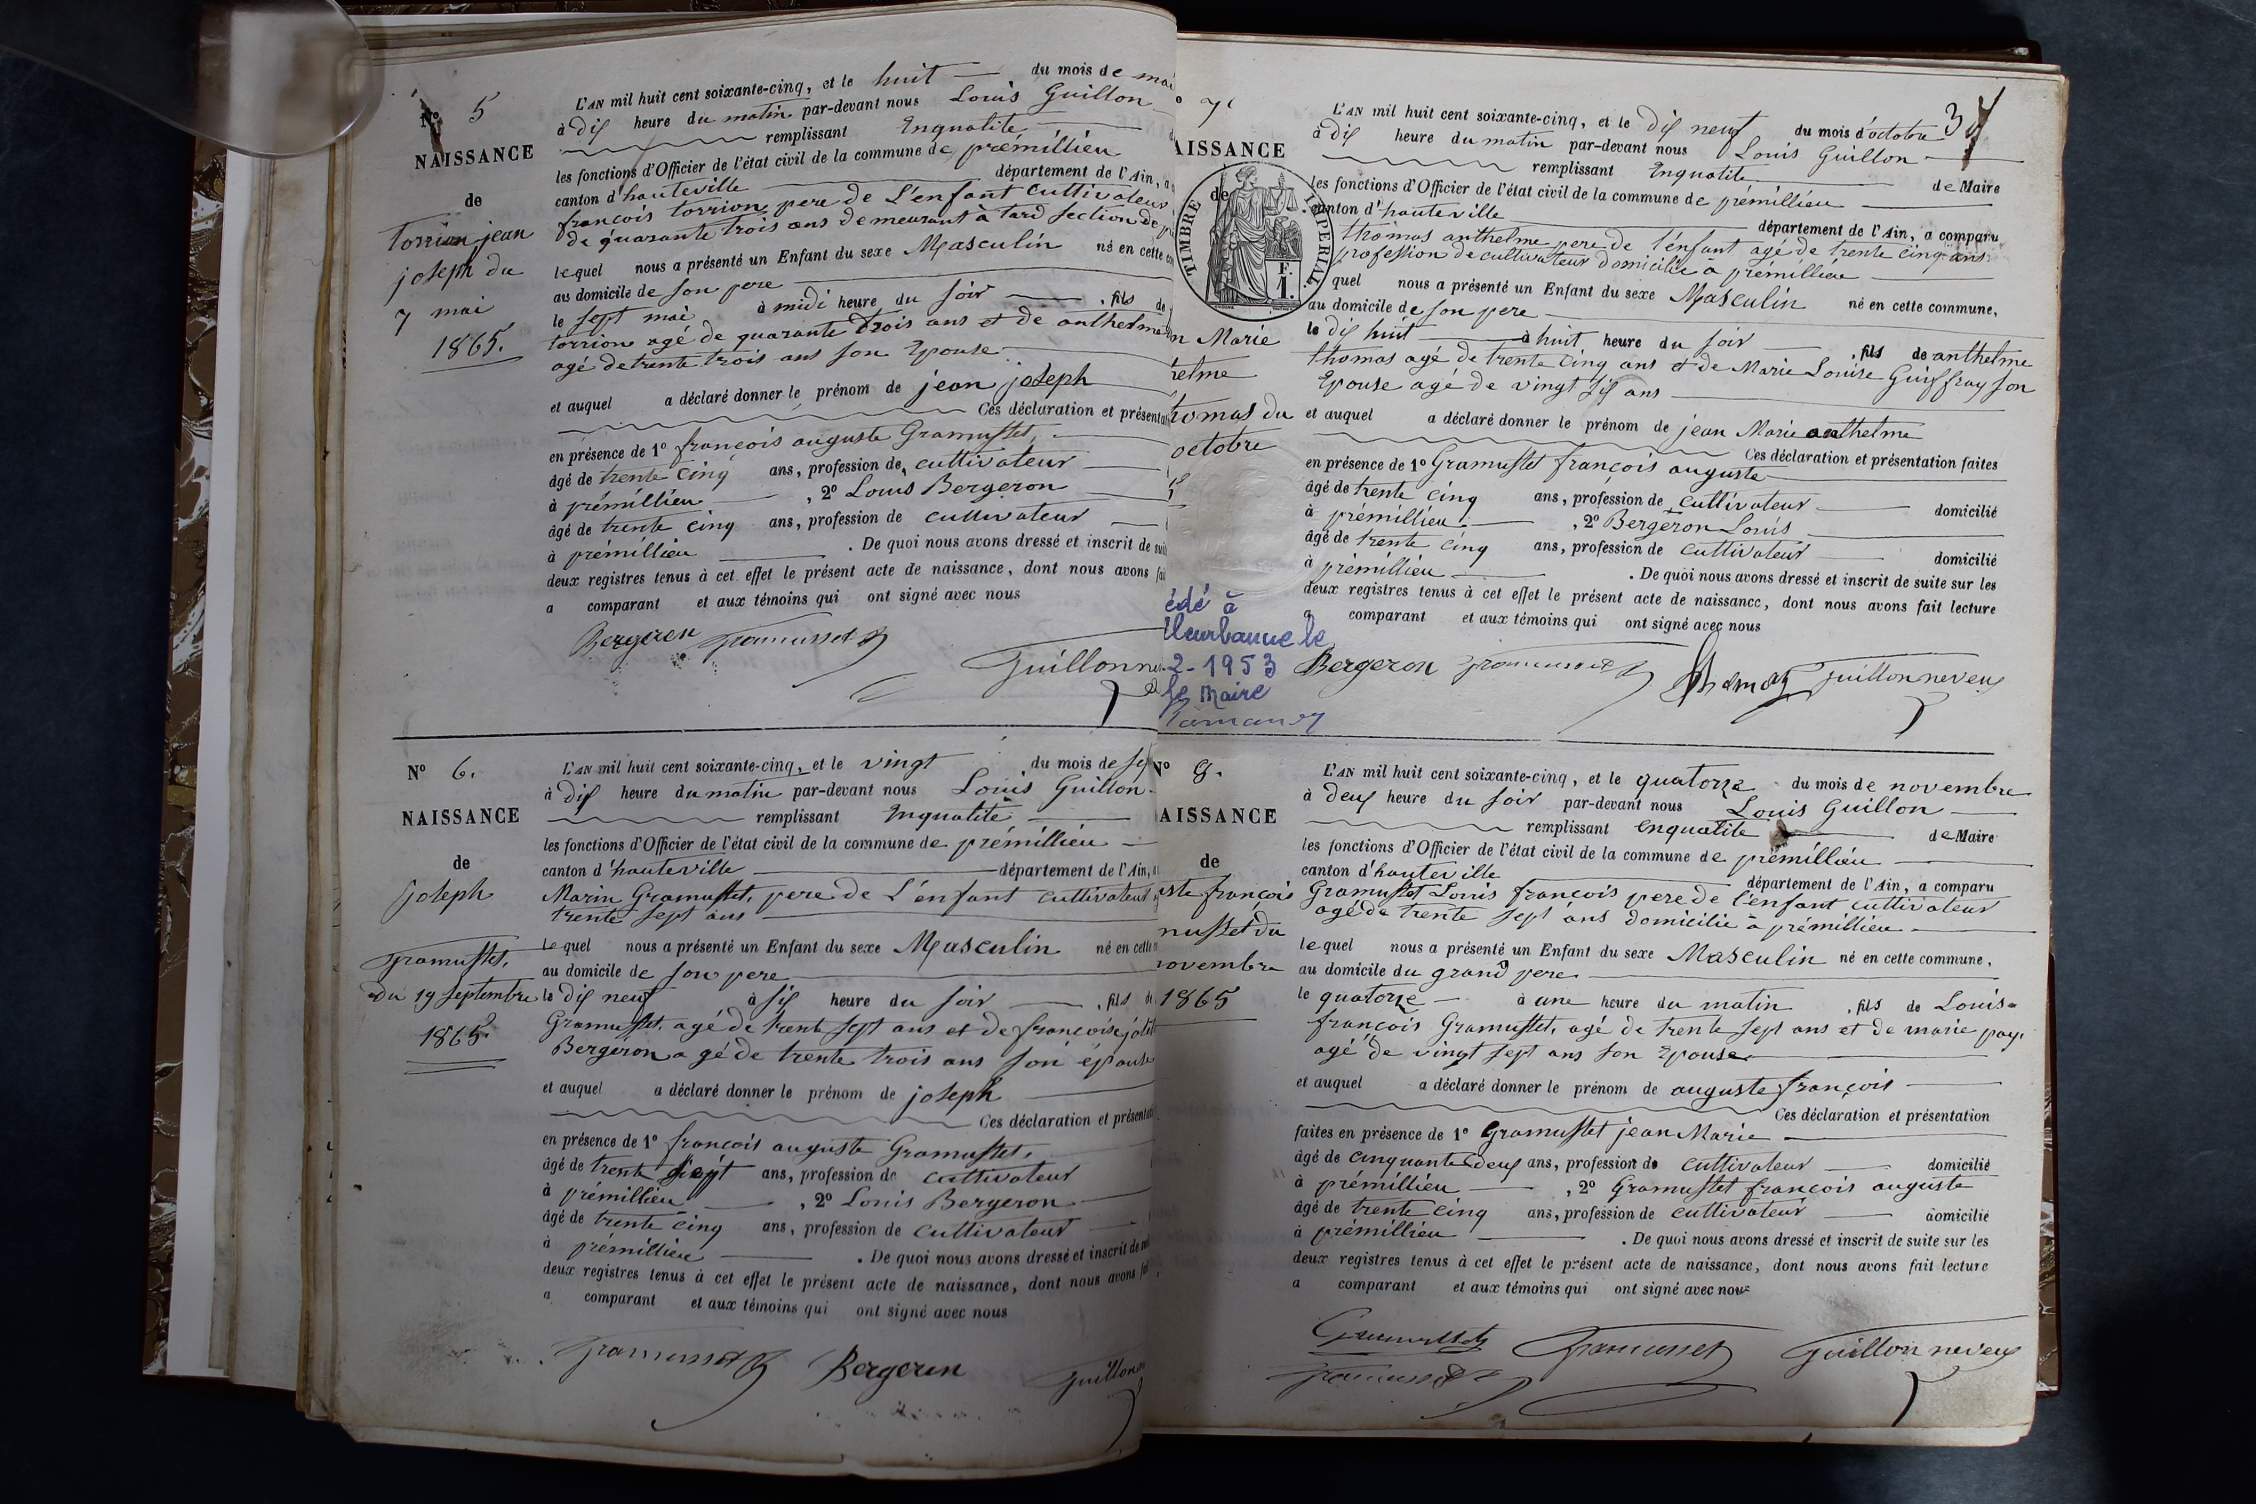 N° 5
NAISSANCE
de
torrion jean
joseph du
7 mai
1865.
L'AN mil huit cent soixante-cinq, et le huit du mois de mai
à dix heure du matin par-devant nous Louis Guillon
remplissant Enqualité
les fonctions d'Officier de l'état civil de la commune de prémillieu
canton d'hauteville département de l'Ain, a
françois torrion pere de L'enfant cultivateur
de quarante trois ans demeurant à tard section de
lequel nous a présenté un Enfant du sexe Masculin né en cette
au domicile de son pere
le sept mai à midi heure du soir , fils de
torrion agé de quarante trois ans et de anthelme
agé de trente trois ans son Epouse
et auquel a déclaré donner le prénom de jean joseph
Ces déclaration et présentat
en présence de 1° françois auguste Gramusset,
âgé de trente cinq ans, profession de cultivateur
à prémillieu , 2° Louis Bergeron
âgé de trente cinq ans, profession de cultivateur
à prémillieu . De quoi nous avons dressé et inscrit de suit
deux registres tenus à cet effet le présent acte de naissance, dont nous avons fai
a comparant et aux témoins qui ont signé avec nous
Bergeren Gramusset
Guillon
N° 6.
NAISSANCE
de
joseph
Gramusset,
du 19 septembre
1865.
L'AN mil huit cent soixante-cinq, et le vingt du mois de
à dix heure du matin par-devant nous Louis Guillon
remplissant Enqualité
les fonctions d'Officier de l'état civil de la commune de prémillieu
canton d'hauteville département de l'Ain,
Marin Gramusset, pere de L'enfant cultivateur
trente sept ans
lequel nous a présenté un Enfant du sexe Masculin né en cette
au domicile de son pere
le dix neuf à six heure du soir , fils de
Gramusset, agé de trente sept ans et de françoise
Bergeron agé de trente trois ans son épouse
et auquel a déclaré donner le prénom de joseph
Ces déclaration et présentat
en présence de 1° françois auguste Gramusset,
âgé de trente sept ans, profession de cultivateur
à prémillieu , 2° Louis Bergeron
âgé de trente cinq ans, profession de cultivateur
à prémillieu . De quoi nous avons dressé et inscrit de
deux registres tenus à cet effet le présent acte de naissance, dont nous avons
a comparant et aux témoins qui ont signé avec nous
Gramusset Bergeren Guillon
34
7
AISSANCE
de
TIMBRE IMPERIAL.
F.
1.
n Marie
helme
homas du
octobre
édé à
lleurbanne le
2-1953
le Maire
L'AN mil huit cent soixante-cinq, et le dix neuf du mois d'octobre
à dix heure du matin par-devant nous Louis Guillon
remplissant Enqualité de Maire
les fonctions d'Officier de l'état civil de la commune de prémillieu
canton d'hauteville département de l'Ain, a comparu
thomas anthelme pere de l'énfant agé de trente cinq ans
profession de cultivateur domicilié à prémillieu
quel nous a présenté un Enfant du sexe Masculin né en cette commune,
au domicile de son pere
le dix huit à huit heure du soir , fils de anthelme
thomas agé de trente cinq ans et de Marie Louise Guiffray son
Epouse agé de vingt six ans
et auquel a déclaré donner le prénom de jean Marie anthelme
Ces déclaration et présentation faites
en présence de 1° Gramusset françois auguste
âgé de trente cinq ans, profession de cultivateur domicilié
à prémillieu , 2° Bergeron Louis
âgé de trente cinq ans, profession de cultivateur domicilié
à prémillieu . De quoi nous avons dressé et inscrit de suite sur les
deux registres tenus à cet effet le présent acte de naissance, dont nous avons fait lecture
a comparant et aux témoins qui ont signé avec nous
Bergeron Gramusset Thomas Guillon neveu
N° 8.
AISSANCE
de
uste françois
musset du
novembre
1865
L'AN mil huit cent soixante-cinq, et le quatorze du mois de novembre
à deux heure du soir par-devant nous Louis Guillon
remplissant Enqualité de Maire
les fonctions d'Officier de l'état civil de la commune de prémillieu
canton d'hauteville département de l'Ain, a comparu
Gramusset Louis françois pere de l'enfant cultivateur
agé de trente sept ans domicilié à prémillieu
lequel nous a présenté un Enfant du sexe Masculin né en cette commune,
au domicile du grand pere
le quatorze à une heure du matin , fils de Louis=
françois Gramusset, agé de trente sept ans et de marie pay.
agé de vingt sept ans son Epouse
et auquel a déclaré donner le prénom de auguste françois
Ces déclaration et présentation
faites en présence de 1° Gramusset jean Marie
âgé de cinquante deux ans, profession de cultivateur domicilié
à prémillieu , 2° Gramusset françois auguste
âgé de trente cinq ans, profession de cultivateur domicilié
à prémillieu . De quoi nous avons dressé et inscrit de suite sur les
deux registres tenus à cet effet le présent acte de naissance, dont nous avons fait lecture
a comparant et aux témoins qui ont signé avec nous
Gramusset Gramusset Guillon neveu
Gramusset